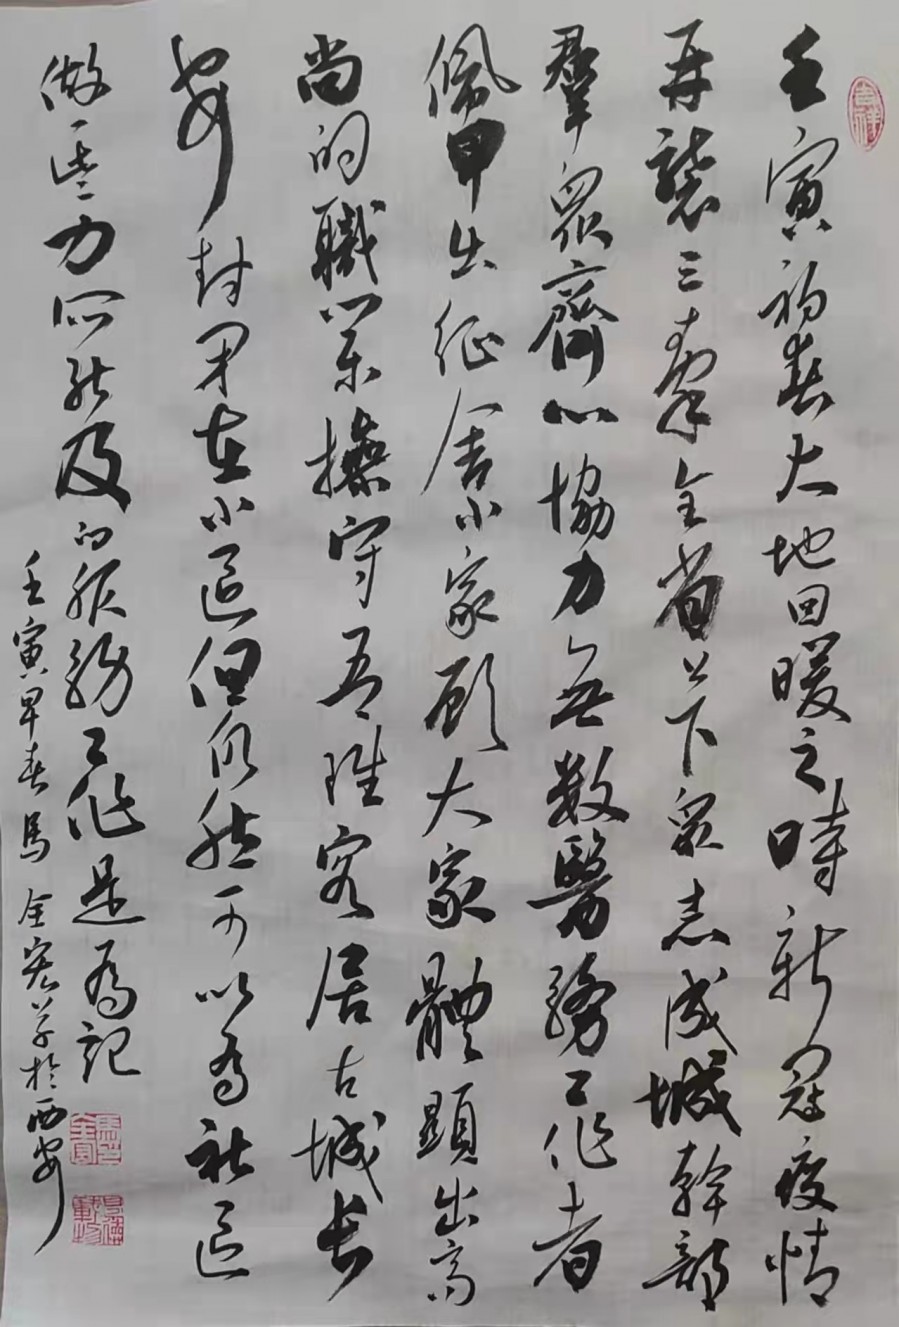 壬寅初春大地回暖之時新冠疫情
再襲三秦全省上下衆志成城幹部
羣眾齊心協力無數醫務工作者
佩甲出征舍小家顧大家體顯出高
尚的職業操守吾雖客居古城長
安封閉在小區但仍然可以為社區
做一些力所能及的服務工作是為記
壬寅早春馬金宏草於西安
吉祥